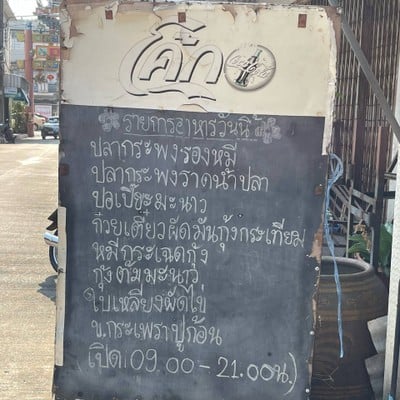 โค้ก
รายการอาหารวันนี้
ปลากระพงรองหมี่
ปลากระพงราดน้ำปลา
ปอเปี๊ยะมะนาว
ก๋วยเตี๋ยวผัดมันกุ้งกระเทียม
หมี่กระเฉดกุ้ง
กุ้งต้มมะนาว
ใบเหลียงผัดไข่
ข.กระเพราปูก้อน
(เปิด. 09.00 - 21.00น.)